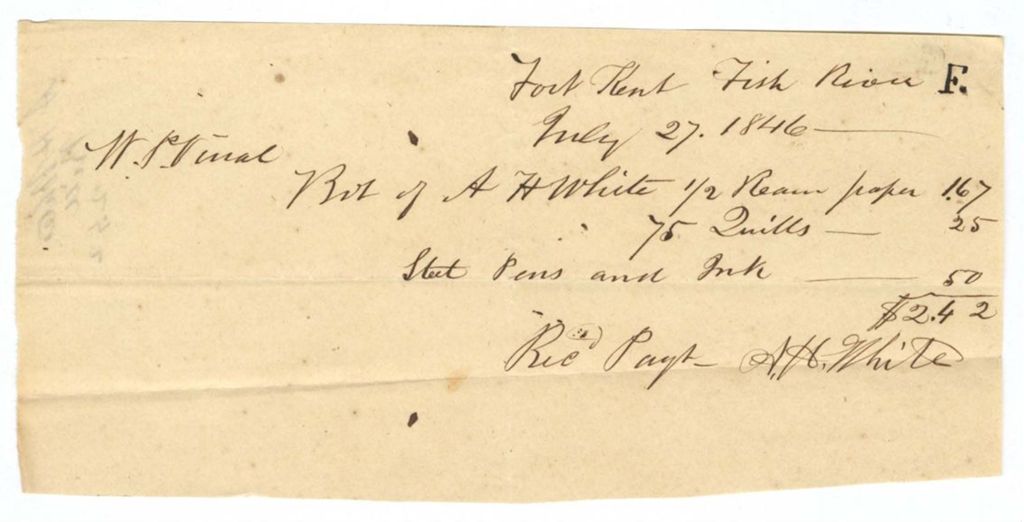 Fort Kent Fish River F.
July 27. 1846
W. P. Vinal
Bot of A H White 1/2 Ream paper 1.67
75 Quills — 25
Steel Pens and Ink — 50
$2.42
Recd Payt - A. H. White